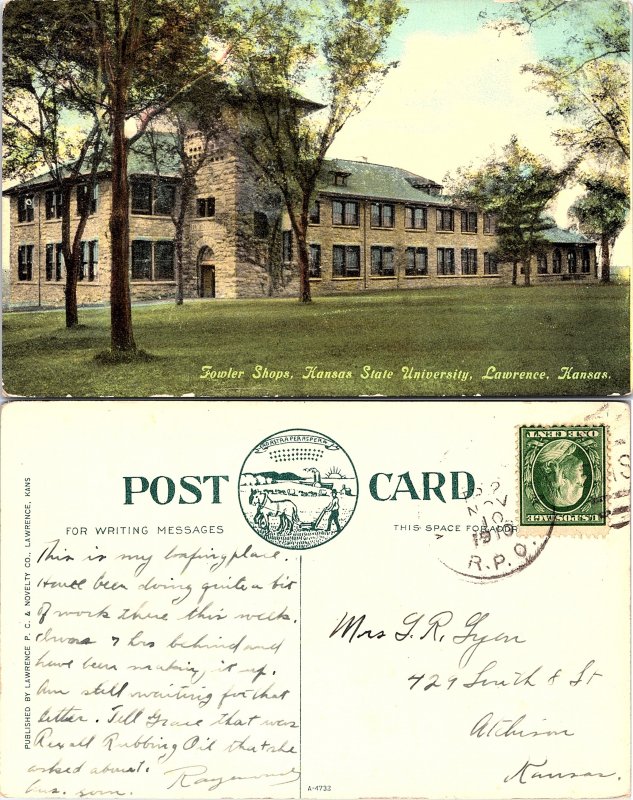 Fowler Shops, Kansas State University, Lawrence, Kansas.
AD ASTRA PER ASPERA
POST CARD
FOR WRITING MESSAGES
THIS SPACE FOR ADDR
NOV
1910
R.P.O.
U.S. POSTAGE
ONE CENT
PUBLISHED BY LAWRENCE P. C. & NOVELTY CO., LAWRENCE, KANS
This is my loafing place.
Have been doing quite a bit
of work there this week.
I was 7 hrs behind and
have been making it up.
Am still waiting for that
letter. Tell Grace that was
Rexall Rubbing Oil that she
asked about.
Raymond
Ans. soon.
Mrs G. R. Gyer
429 South 8 St
Atchison
Kansas.
A-4733